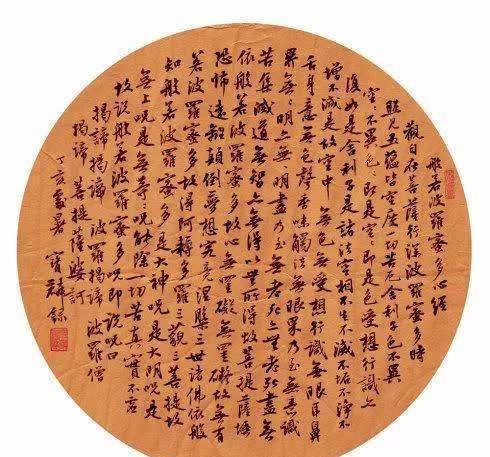 般若波羅蜜多心經
觀自在菩薩行深波羅蜜多時
照見五蘊皆空度一切苦厄舍利子色不異
空〻不異色〻即是空〻即是色受想行識亦
復如是舍利子是諸法空相不生不滅不垢不淨不
增不減是故空中無色無受想行識無眼耳鼻
舌身意無色聲香味觸法無眼界乃至無意識
界無〻明亦無〻明盡乃至無老死亦無老死盡無
苦集滅道無智亦無得以無所得故菩提薩埵
依般若波羅蜜多故心無罣礙無罣礙故無有
恐怖遠離顛倒夢想究竟涅槃三世諸佛依般
若波羅蜜多故得阿耨多羅三藐三菩提故
知般若波羅蜜多是大神咒是大明咒是
無上咒是無等〻咒能除一切苦真實不虛
故說般若波羅蜜多咒即說咒曰
揭諦揭諦 波羅揭諦 波羅僧
揭諦 菩提薩婆訶
丁亥處暑 寶麟錄